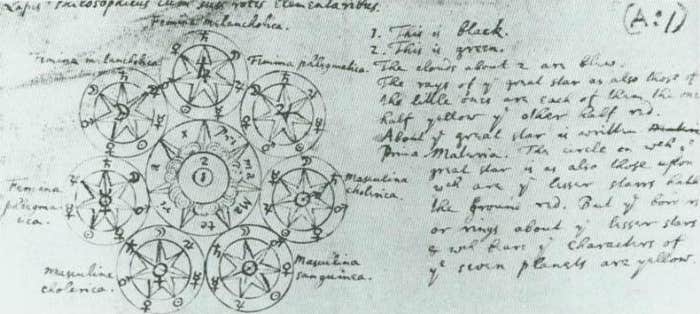 Lapis Philosophicus cum suis rotis elementaribus.
(A:1)
Femina melancholica.
Femina melancholica
Femina phlegmatica.
Femina phlegma-
tica.
Masculina
cholerica.
Masculina
cholerica.
Masculina
sanguinea.
Pri ma Ma te ri a
2
1
1. This is black.
2. This is green.
The clouds about 2 are blew.
The rays of yͤ great star as also most of
the little ones are each of them the one
half yellow yͤ other half red.
About yͤ great star is written
Prima Materia. The circle on wch yͤ
great star is as also those upon
wch are yͤ lesser starrs hath
the ground red. But yͤ
or rings about yͤ lesser stars
& wch beare yͤ characters of
yͤ seven planets are yellow.